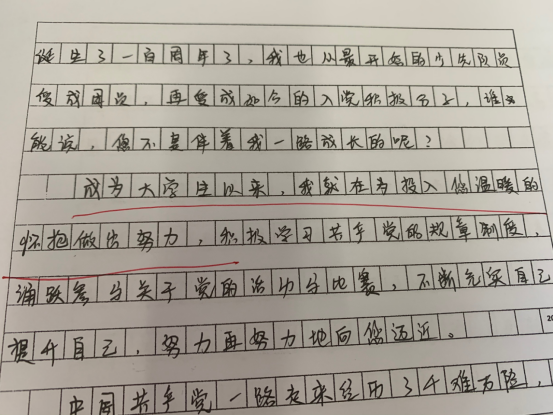 诞生了一百周年了，我也从最开始的少先队员
变成团员，再变成如今的入党积极分子，谁又
能说，您不是伴着我一路成长的呢？
成为大学生以来，我就在为投入您温暖的
怀抱做出努力，积极学习共产党的规章制度，
踊跃参与关于党的活动与比赛，不断充实自己
提升自己，努力再努力地向您迈近。
20
中国共产党一路走来经历了千难万险，